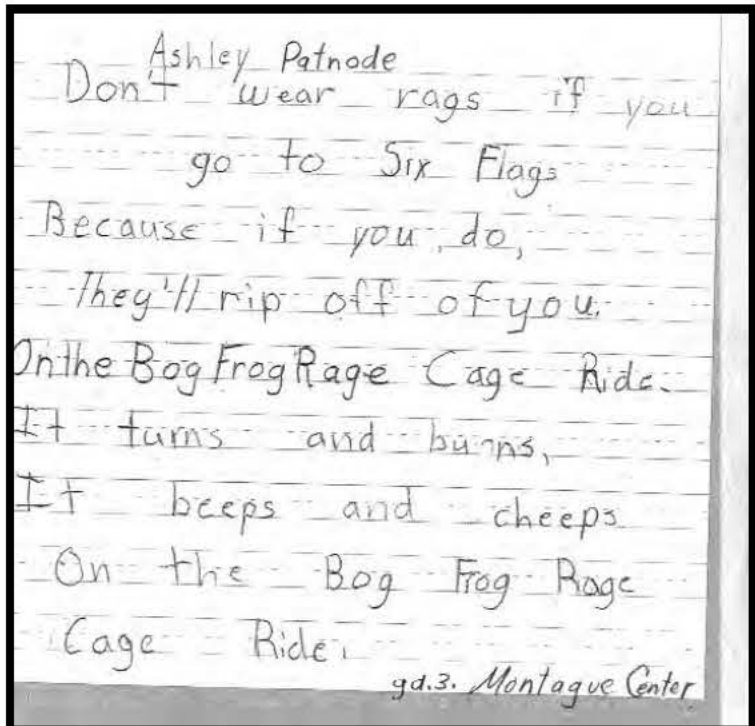 Ashley Patnode
Don't wear rags if you
go to Six Flags
Because if you do,
They'll rip off of you.
On the Bog Frog Rage Cage Ride.
It turns and burns,
It beeps and cheeps
On the Bog Frog Rage
Cage Ride.
gd.3. Montague Center